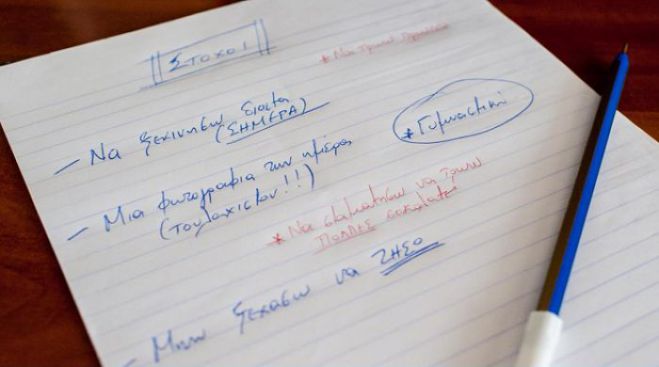 ΣΤΟΧΟΙ
* Να τρώω
- Να ξεκινήσω δίαιτα
(ΣΗΜΕΡΑ)
* Γυμναστική
- Μια φωτογραφία την ημέρα
(τουλάχιστον!!)
* Να σταματήσω να τρώω
ΠΟΛΛΕΣ σοκολάτες
- Μην ξεχάσω να ΖΗΣΩ